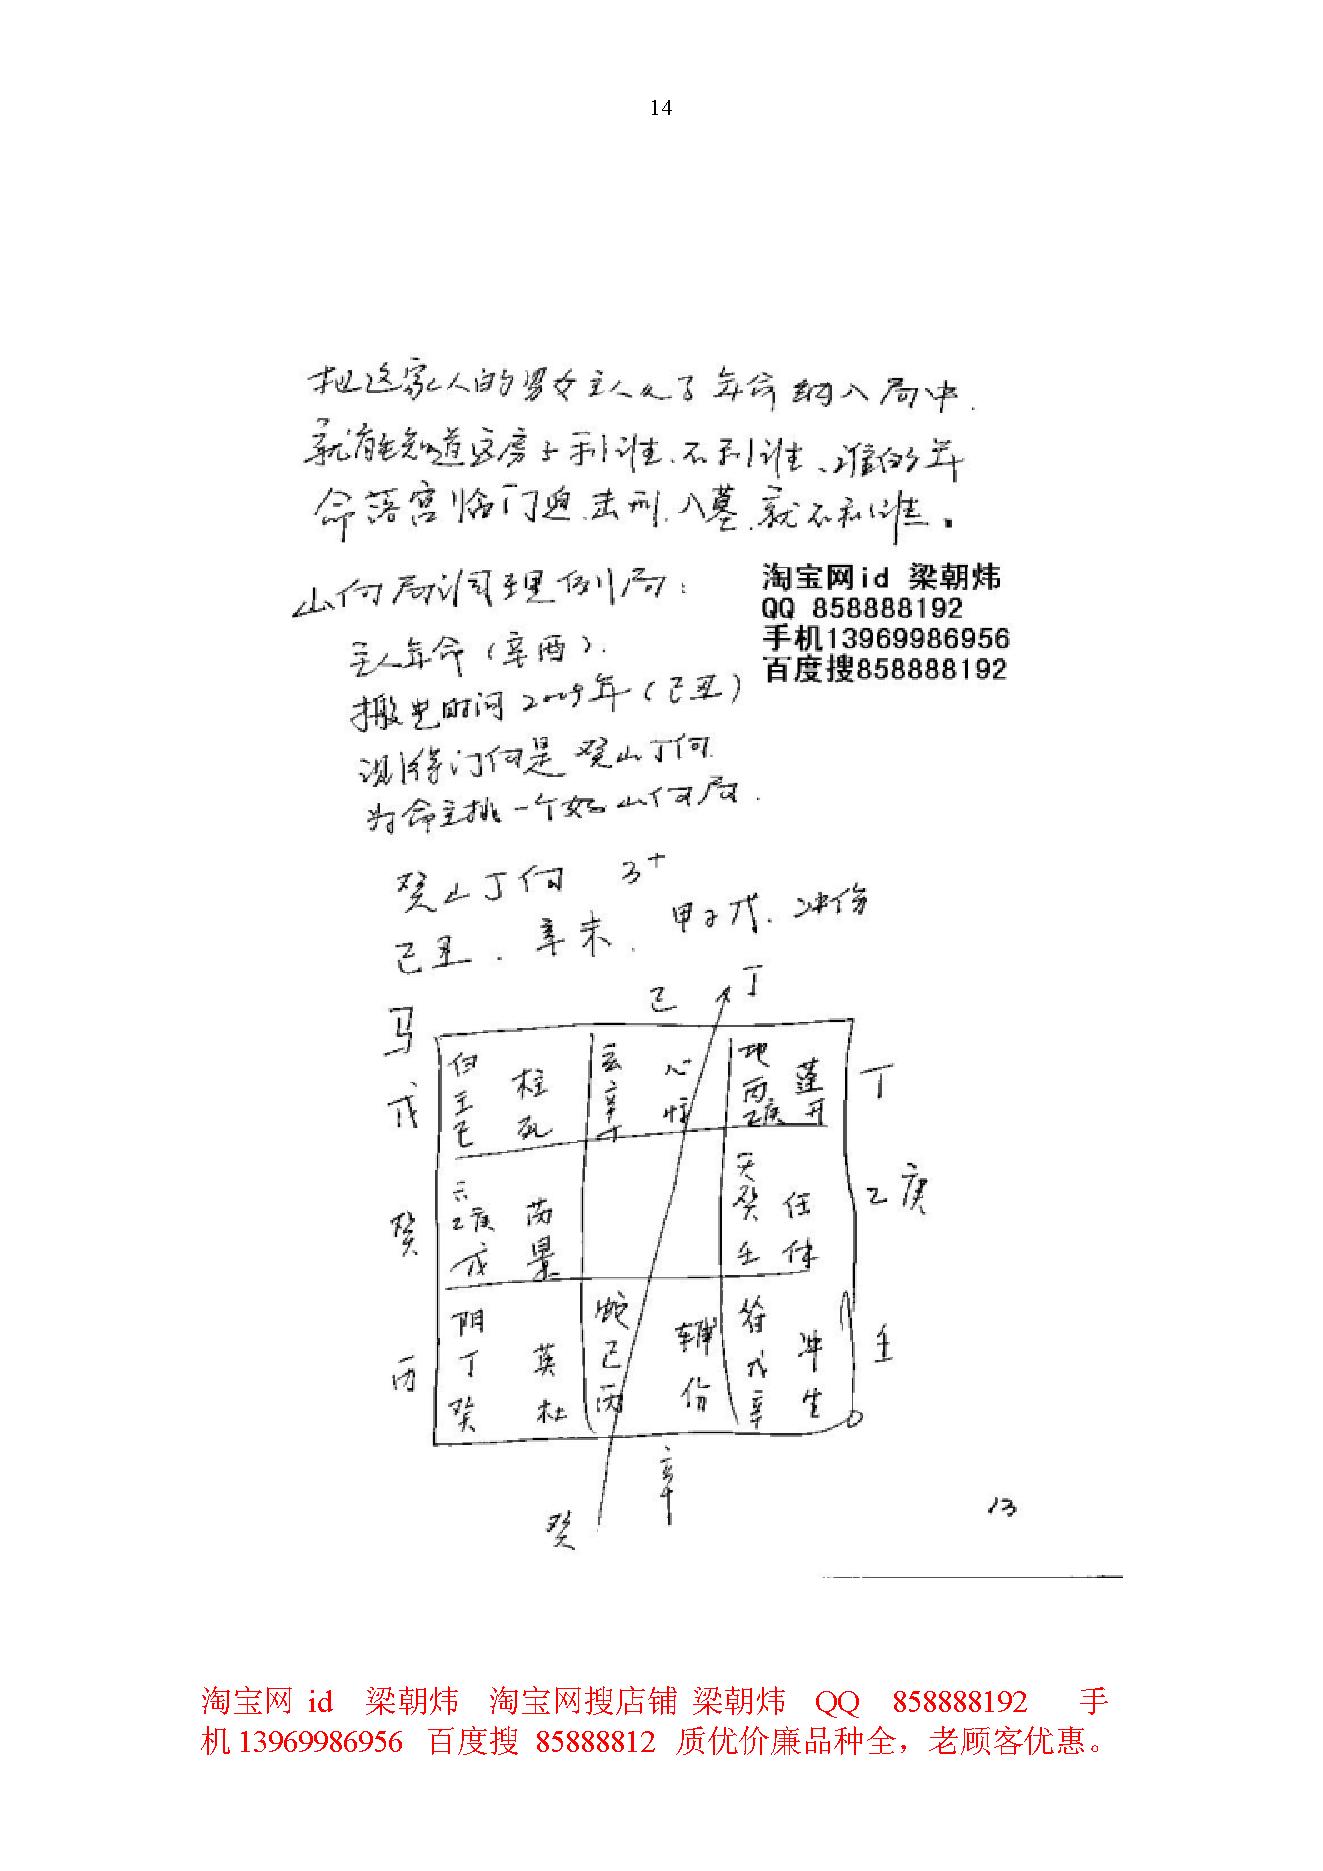 14
把这家人的男女主人及子年命纳入局中.
就能知道这房子利谁.不利谁、谁的年
命落宫临门迫.击刑.入墓.就不利谁。
山向局调理例局:
淘宝网id 梁朝炜
QQ 858888192
手机13969986956
百度搜858888192
主人年命(辛酉).
搬宅时间2009年(己丑)
测得门向是癸山丁向.
为命主挑一个好山向局.
癸山丁向 3+
己丑. 辛未. 甲子戊. 冲伤
马 己 丁
白 玄 心 地 蓬
戊 壬 柱 辛 惊 丙 开 丁
己 死 丁 乙庚
六 天
癸 乙庚 芮 癸 任 乙庚
戊 景 壬 休
阴 蛇 辅 符 冲
丙 丁 英 己 戊 壬
癸 杜 丙 伤 辛 生
辛
癸
13
淘宝网 id 梁朝炜 淘宝网搜店铺 梁朝炜 QQ 858888192 手
机 13969986956 百度搜 85888812 质优价廉品种全，老顾客优惠。